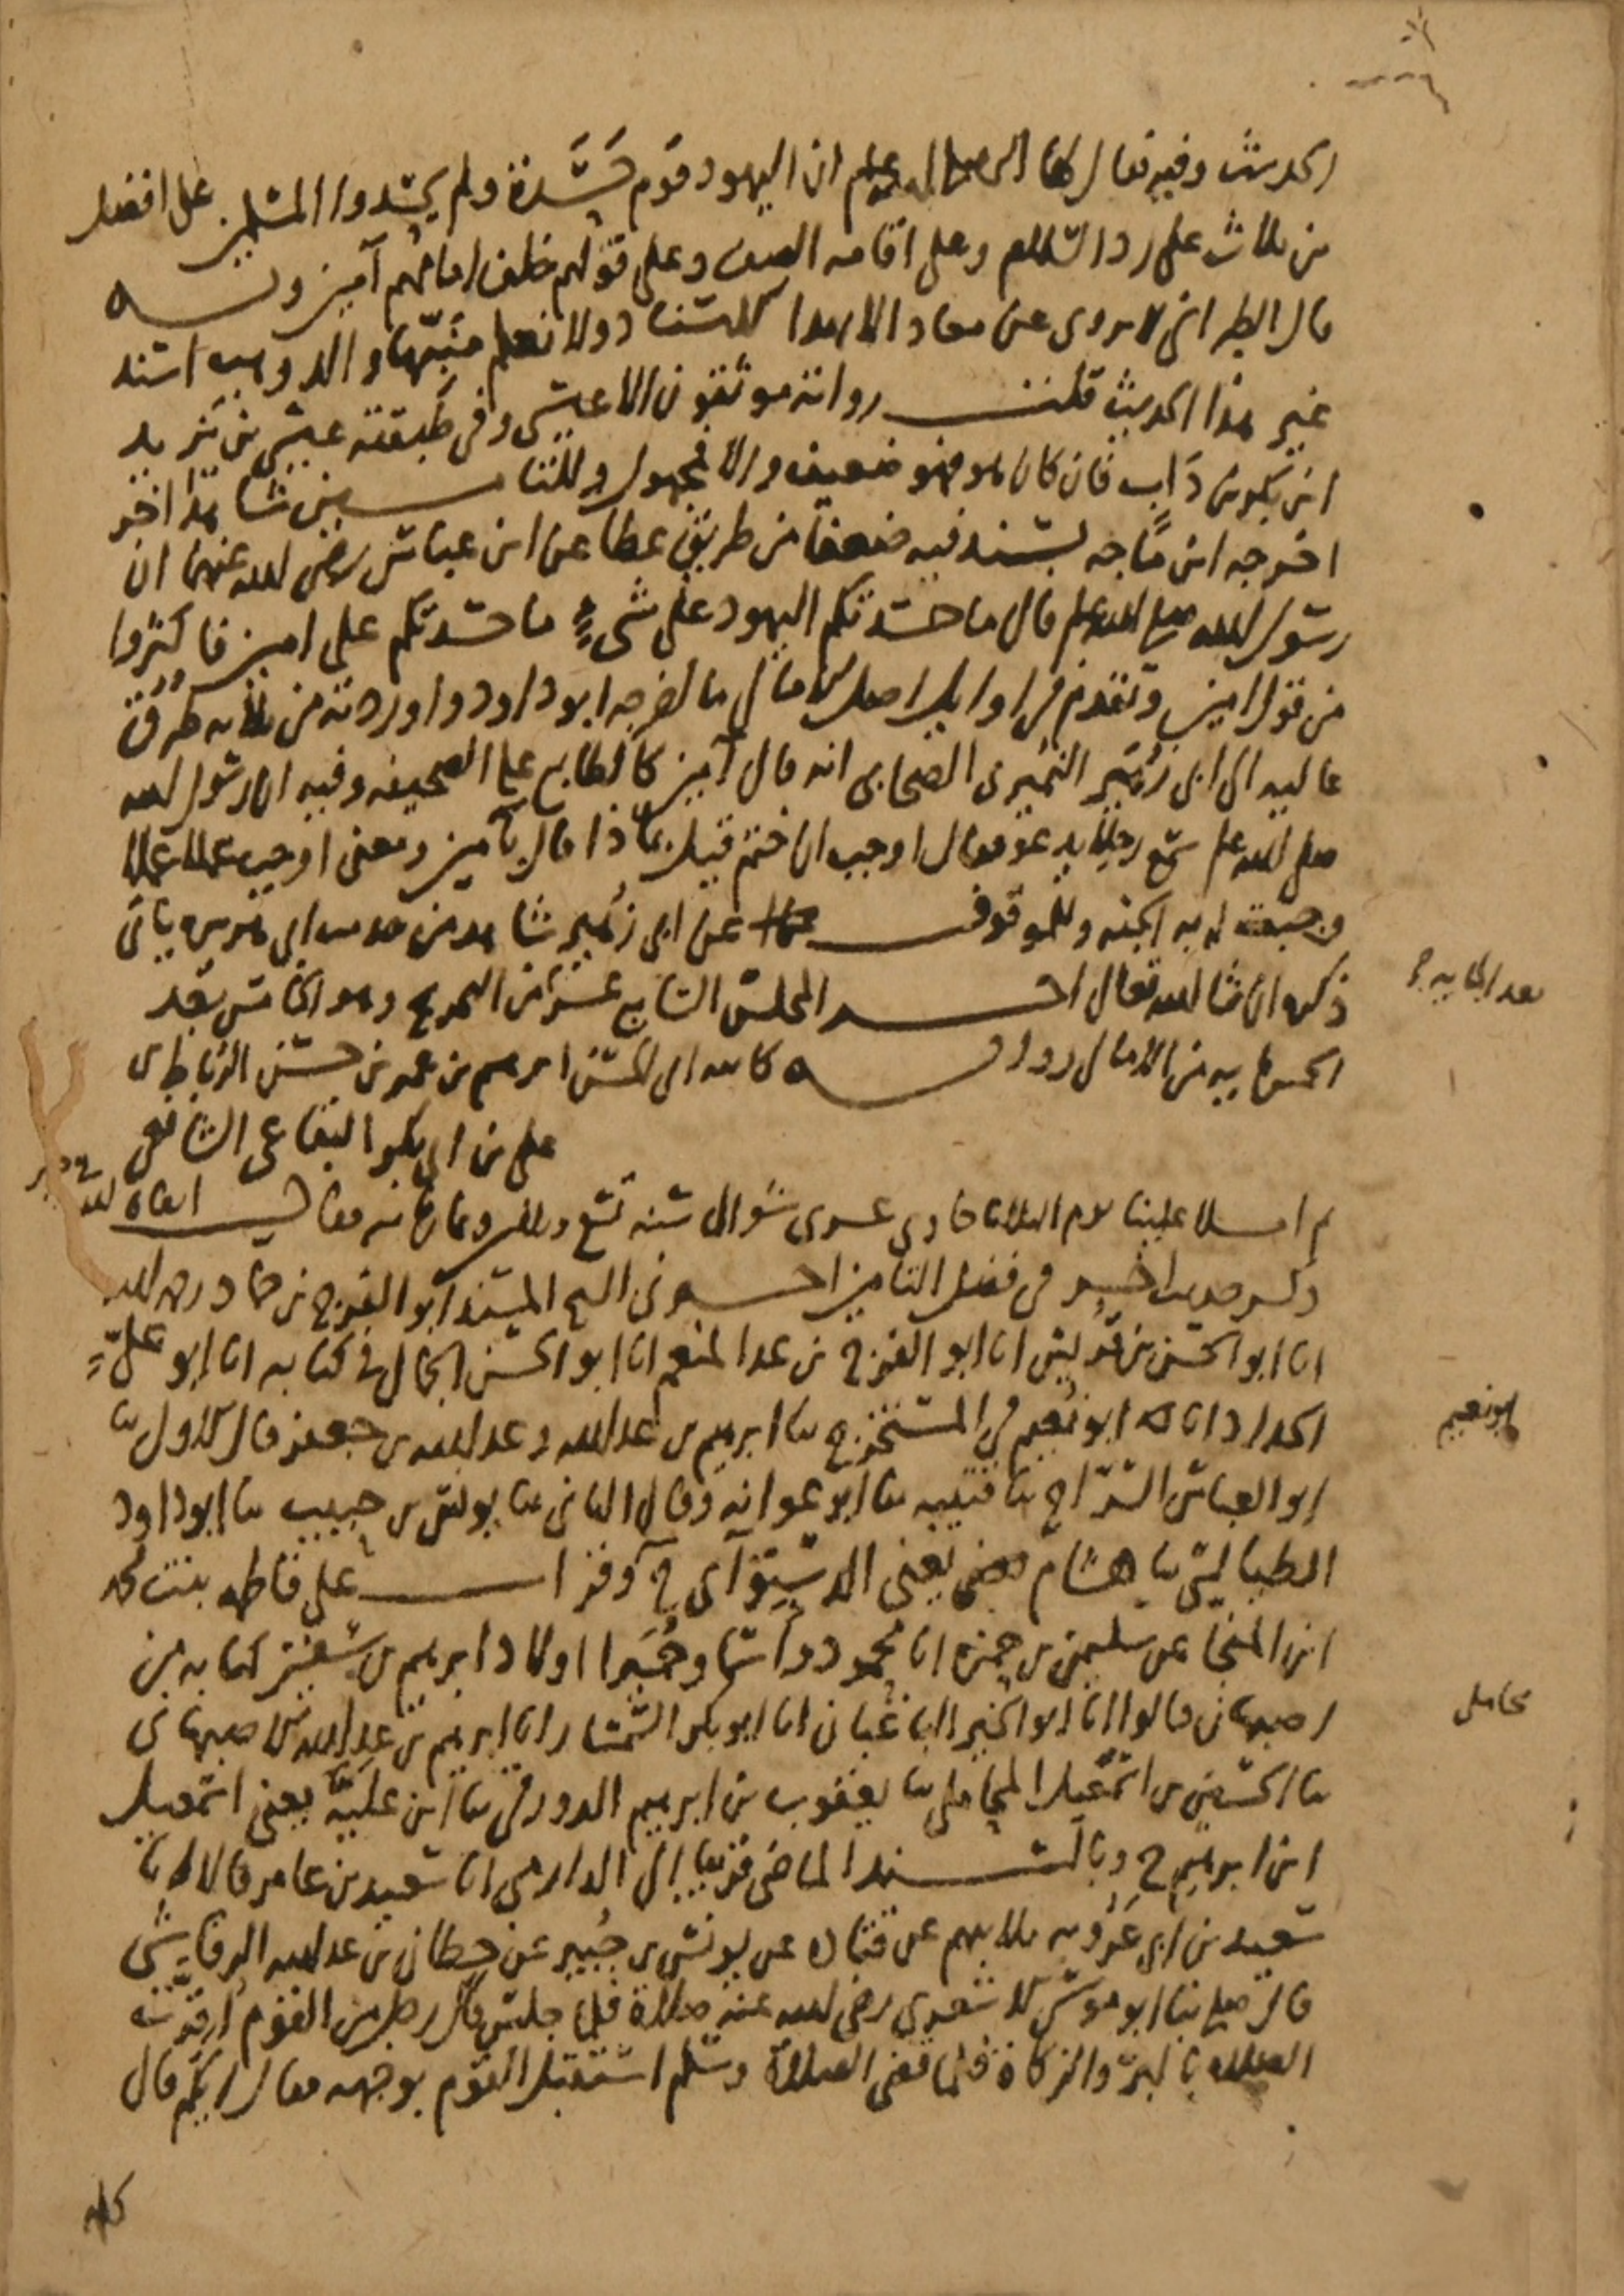 الحديث وفيه فقال لها النبي صلى الله عليه وسلم ان اليهود قوم حَسَدة ولم يحسدوا المسلمين على افضل
من ثلاث على رد السلام وعلى اقامة الصف وعلى قولهم خلف امامهم آمين وبه
قال الطبراني لا يروى عن معاد الا بهذا الاسناد ولا نعلم منبها والد وهب اسند
غير هذا الحديث قلت رواته موثقون الا عيسى وفي طبقته عيسى بن يزيد
ابن بكر بن دَاب فان كان هو فهو ضعيف والا فمجهول وللتامين شاهد اخر
اخرجه ابن ماجه بسند فيه ضعف من طريق عطا عن ابن عباس رضي الله عنهما ان
رسول الله صلى الله عليه وسلم قال ما حسدتكم اليهود على شيء ما حسدتكم على امين فاكثروا
من قول امين وتقدم في اوايل اصل الامالي ما اخرجه ابو داود واوردته من ثلاثة طرق
عاليه الى ابي زهير النميري الصحابي انه قال آمين كالطابع على الصحيفه وفيه ان رسول الله
صلى الله عليه وسلم سمع رجلا يدعو فقال اوجب ان ختم قيل بماذا قال بآمين ومعنى اوجب عمل عملا
وجبت له به الجنه وللموقوف عن ابي زهير شاهد من حديث ابي هريره ياتي
ذكره ان شا الله تعالى اخر المجلس السابع عشر من التخريج وهو الخامس بعد
الخمسمايه من الامالي رواية كاتبه ابي الحسن ابرهيم بن عمر بن حسن الرباط بن
علي بن ابي بكر البقاعي الشافعي
ثم املا علينا يوم الثلاثا حادي عشري شوال سنه تسع وثلاثين وثمان مايه فقال ابقاه الله في خير
ذكر حديث اخر في فضل التامين اخبرني الشيخ المسند ابو الفرج بن حماد رحمه الله
انا ابو الحسن بن قريش انا ابو الفرج بن عبد المنعم انا ابو الحسن الجمال في كتابه انا ابو عليّ
الحداد انا ابو نُعيم في المستخرج ثنا ابرهيم بن عبد الله وعبد الله بن جعفر قال الاول ثنا
ابو العباس السراج ثنا قتيبه ثنا ابو عوانه وقال الثاني ثنا يونس بن حبيب ثنا ابو داود
الطيالسي ثنا هشام يعني الدستوآي ح وقرات على فاطمه بنت محمد
ابن المنجا عن سليمن بن حمزه انا محمود واسما وحُمَيرا اولاد ابرهيم بن سفين كتابه من
اصبهان قالوا انا ابو الخير الباغبان انا ابو بكر السمسار انا ابرهيم بن عبد الله الاصبهاني
ثنا الحسين بن اسمعيل المحاملي ثنا يعقوب بن ابرهيم الدورقي ثنا ابن عليّه يعني اسمعيل
ابن ابرهيم ح وبالسند الماضي قريبا الى الدارمي انا سعيد بن عامر قالا انا
سعيد بن ابي عَرُوبه ثلاثتهم عن قتاده عن يونس بن جُبير عن حطان بن عبد الله الرقاشي
قال صلى بنا ابو موسى الاشعري رضي الله عنه صلاة فلما جلس قال رجل من القوم اُقرّت
الصلاه بالبرّ والزكاة فلما قضى الصلاة وسلم استقبل القوم بوجهه فقال ايكم قال
بعد المايه
ابو نعيم
محاملي